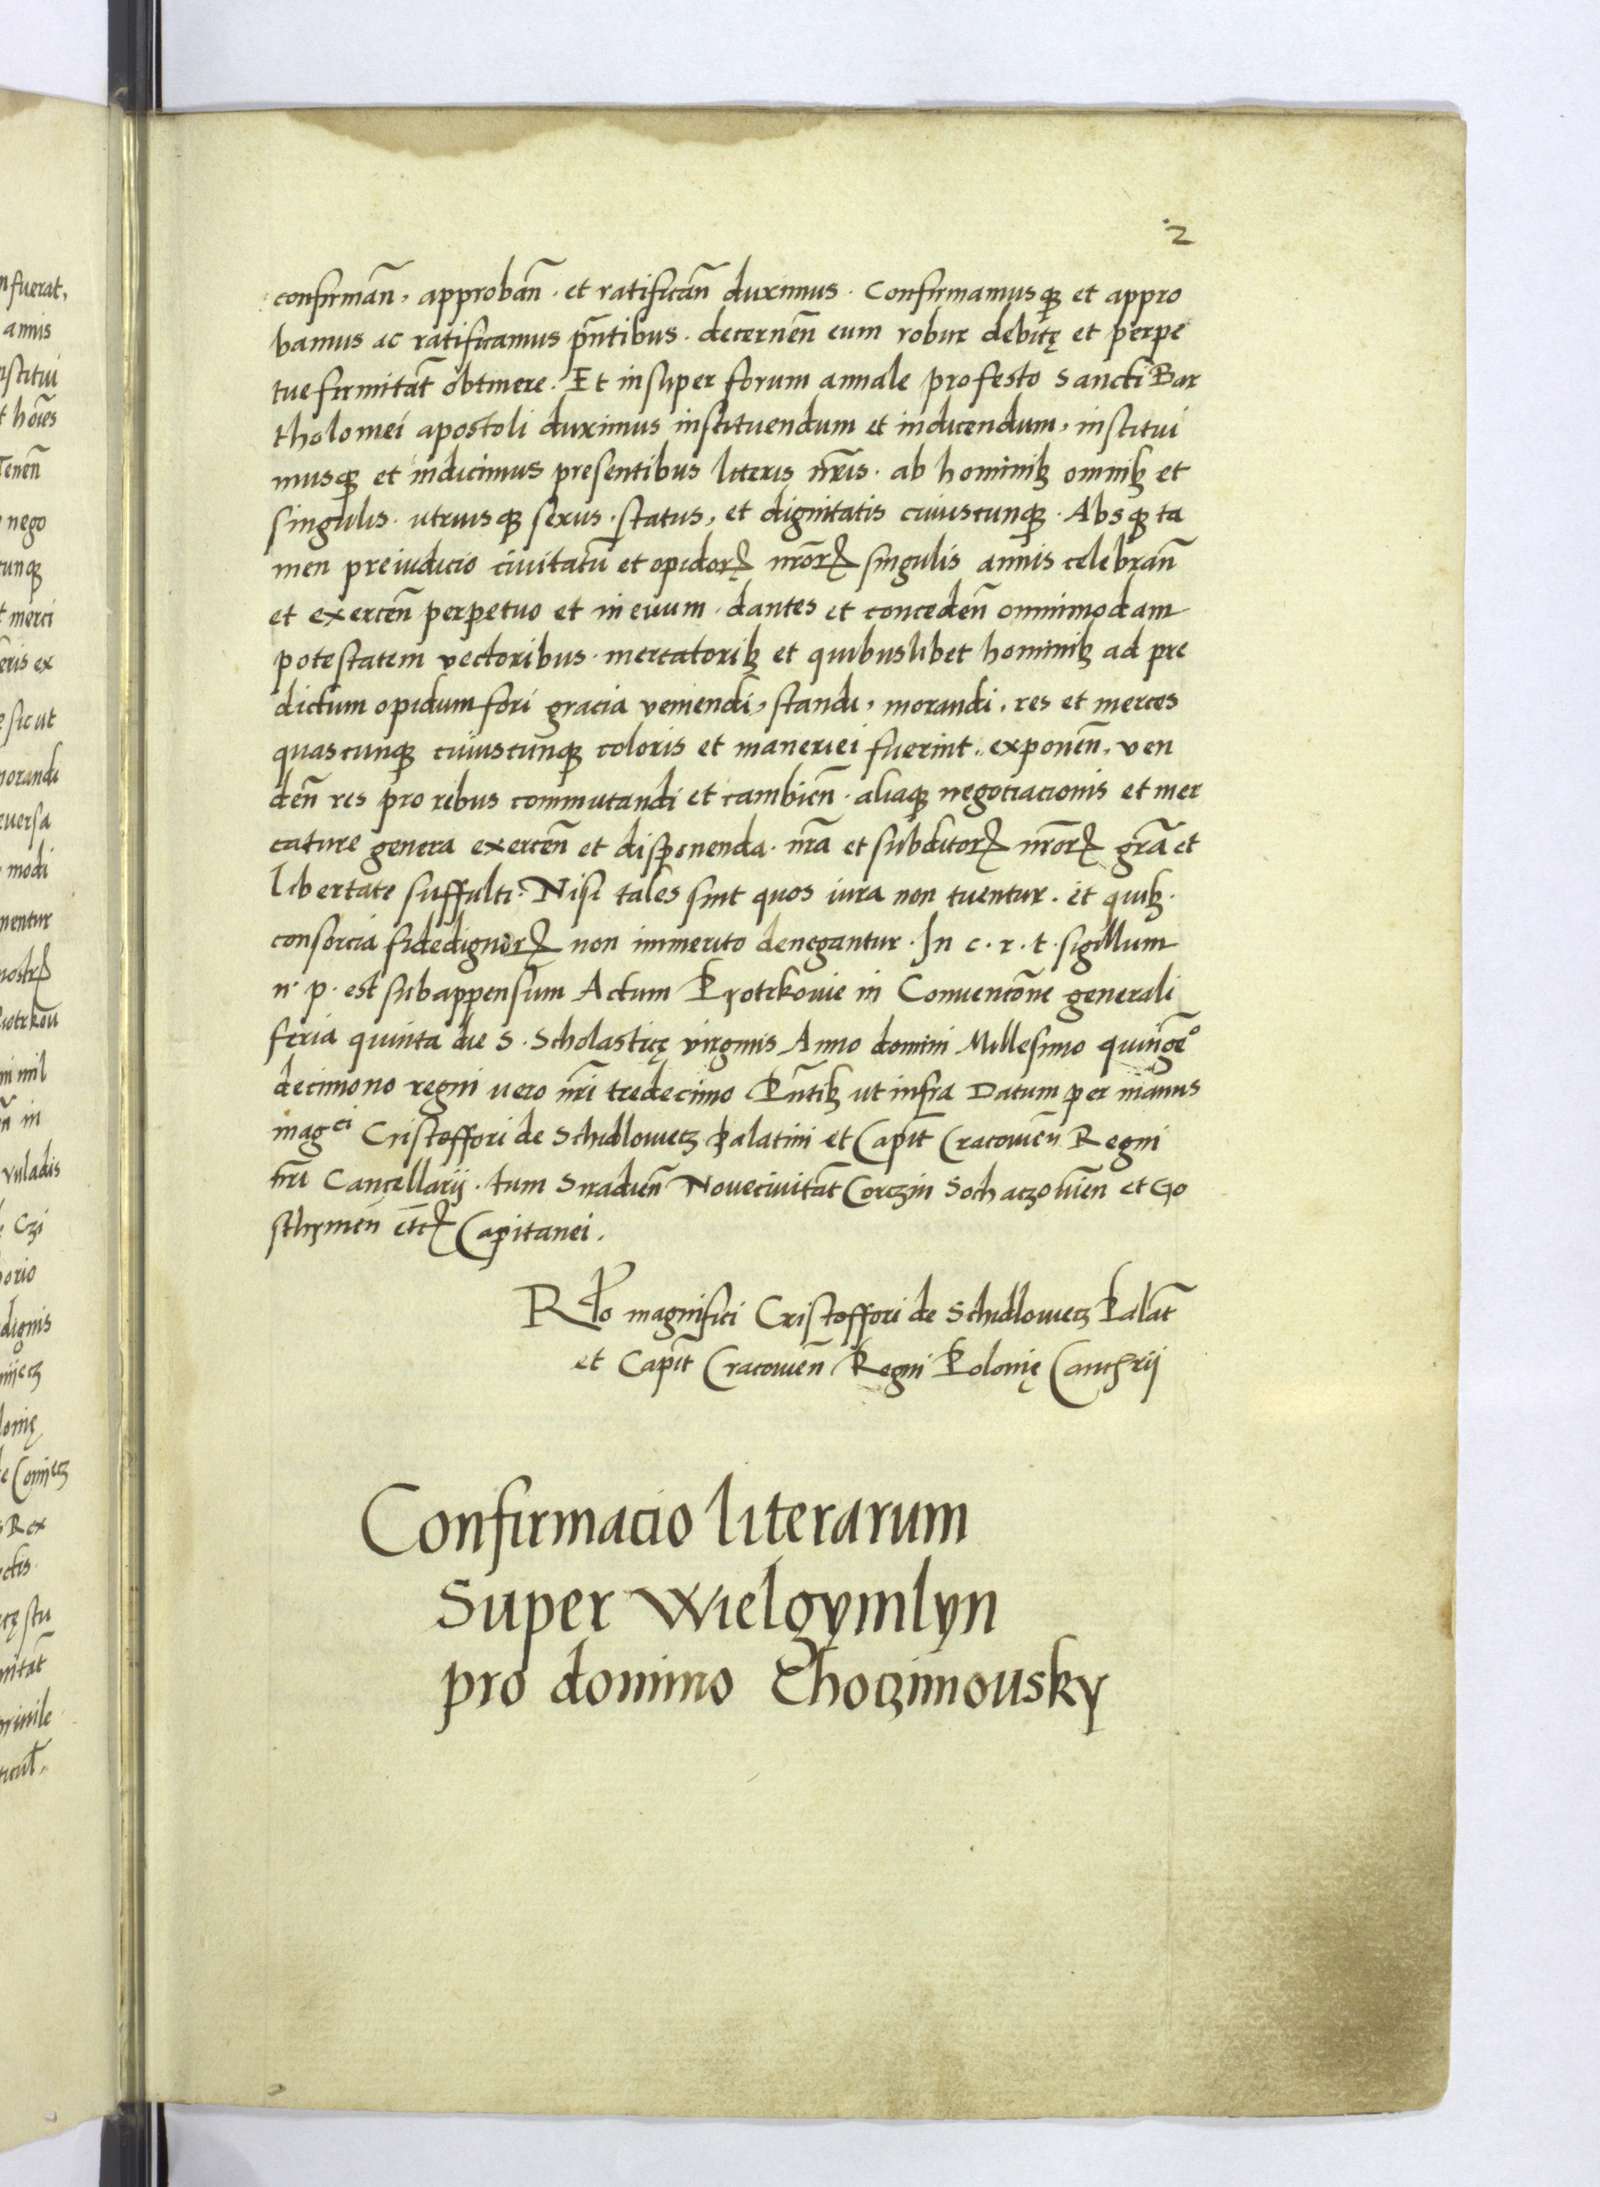 2
confirmañ, approbañ. et ratificañ duximus. Confirmamusqȝ et appro
bamus ac ratificamus p̃ntibus. decerneñ eum robur debitę et perpe
tue firmitat̃ obtinere. Et insuper forum annale pro festo Sancti Bar
tholomei apostoli duximus instituendum et indicendum, institui
musqȝ et indicimus presentibus literis nr̃is. ab hominibȝ omnibȝ et
singulis. utriusqȝ sexus. status, et dignitatis cuiuscunqȝ. Absqȝ ta
men preiudicio civitatũ et opidorꝝ nr̃orꝝ singulis annis celebrañ
et exerceñ perpetuo et in evum. dantes et concedeñ omnimodam
potestatem vectoribus. mercatoribȝ et quibuslibet hominibȝ ad pre
dictum opidum fori gracia veniendi, standi, morandi, res et merces
quascunqȝ cuiuscunqȝ coloris et maneriei fuerint, exponeñ, ven
deñ res pro rebus commutandi et cambieñ. aliaqȝ negociacionis et mer
cature genera exerceñ et disponenda. nr̃a et subditorꝝ nr̃orꝝ gr̃a et
libertate suffulti. Nisi tales sint quos iura non tuentur. et quibȝ.
consorcia fidedignorꝝ non immerito denegantur. In c. r. t. sigillum
n. p. est subappensum Actum Pyotrkovie in Convencõne generali
feria quinta die S. Scholasticę virginis Anno domini Millesimo quingẽº
decimono regni vero nr̃i tredecimo P̃ntibȝ ut infra Datum per manus
mag^ci Cristoffori de Schidlowecz Palatini et Capit̃ Cracovieñ Regni
nr̃i Cancellarij. tum Siradieñ Novecivitat̃ Corczin Sochaczovieñ et Go
sthymeñ etcꝝ Capitanei.
Rlo magnifici Cristoffori de Schidlowecz Palat̃
et Capit̃ Cracovieñ Regni Polonię Canc̃rij
Confirmacio literarum
Super Wielgymlyn
pro domino Choczimovsky